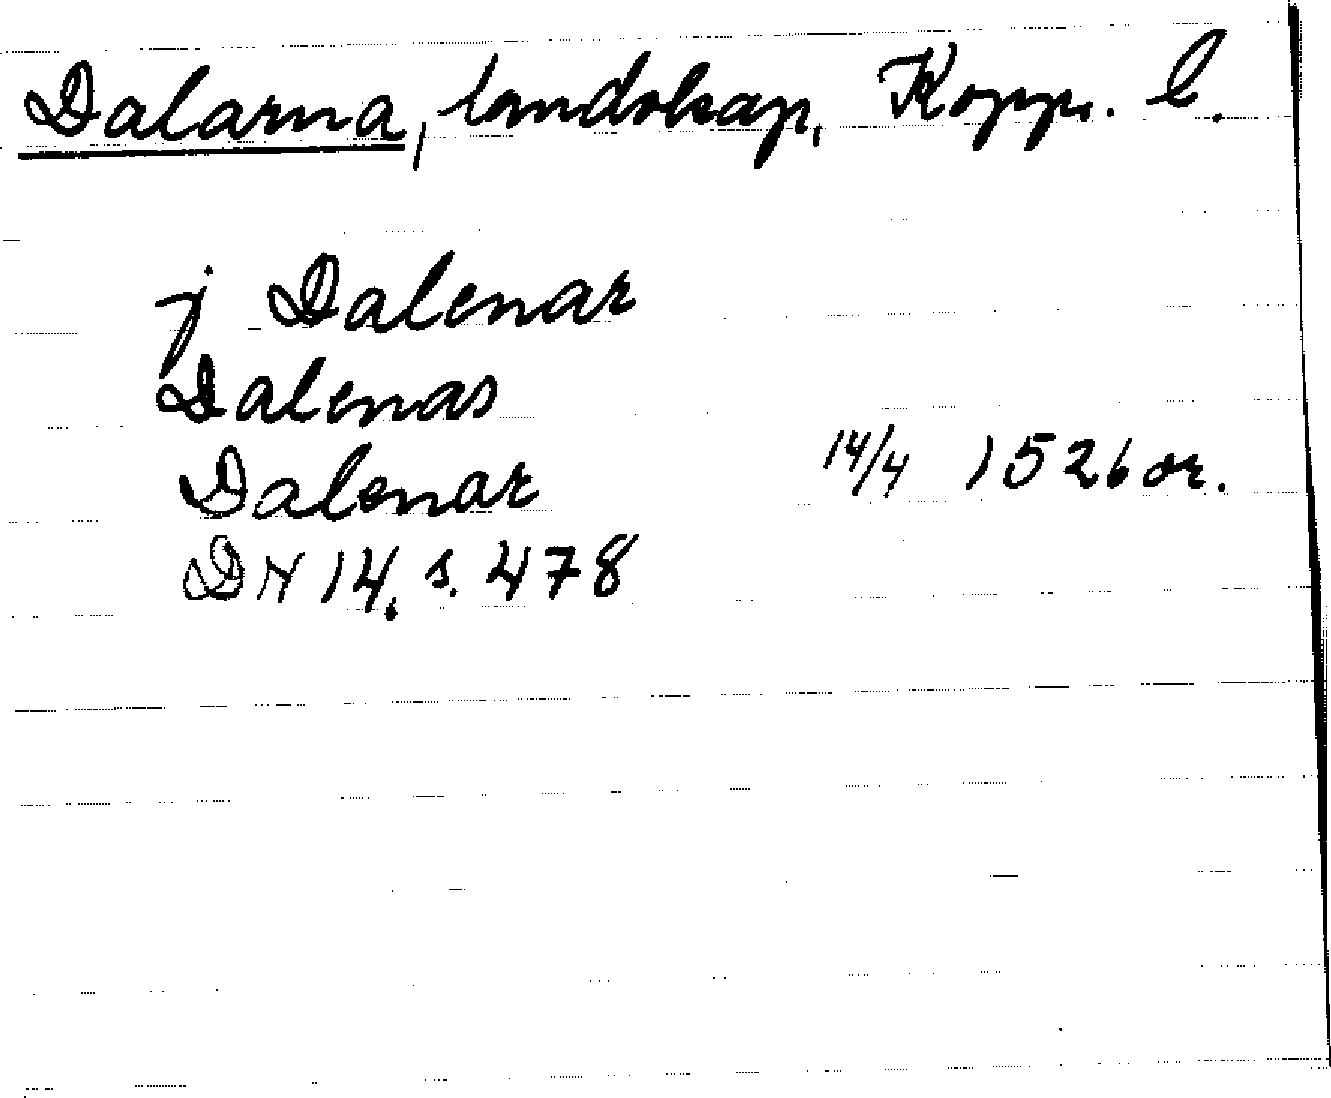 Dalarna, landskap, Kopp. l.
j Dalenar
Dalenas
Dalenar 14/4 1526 or.
DN 14. s. 478